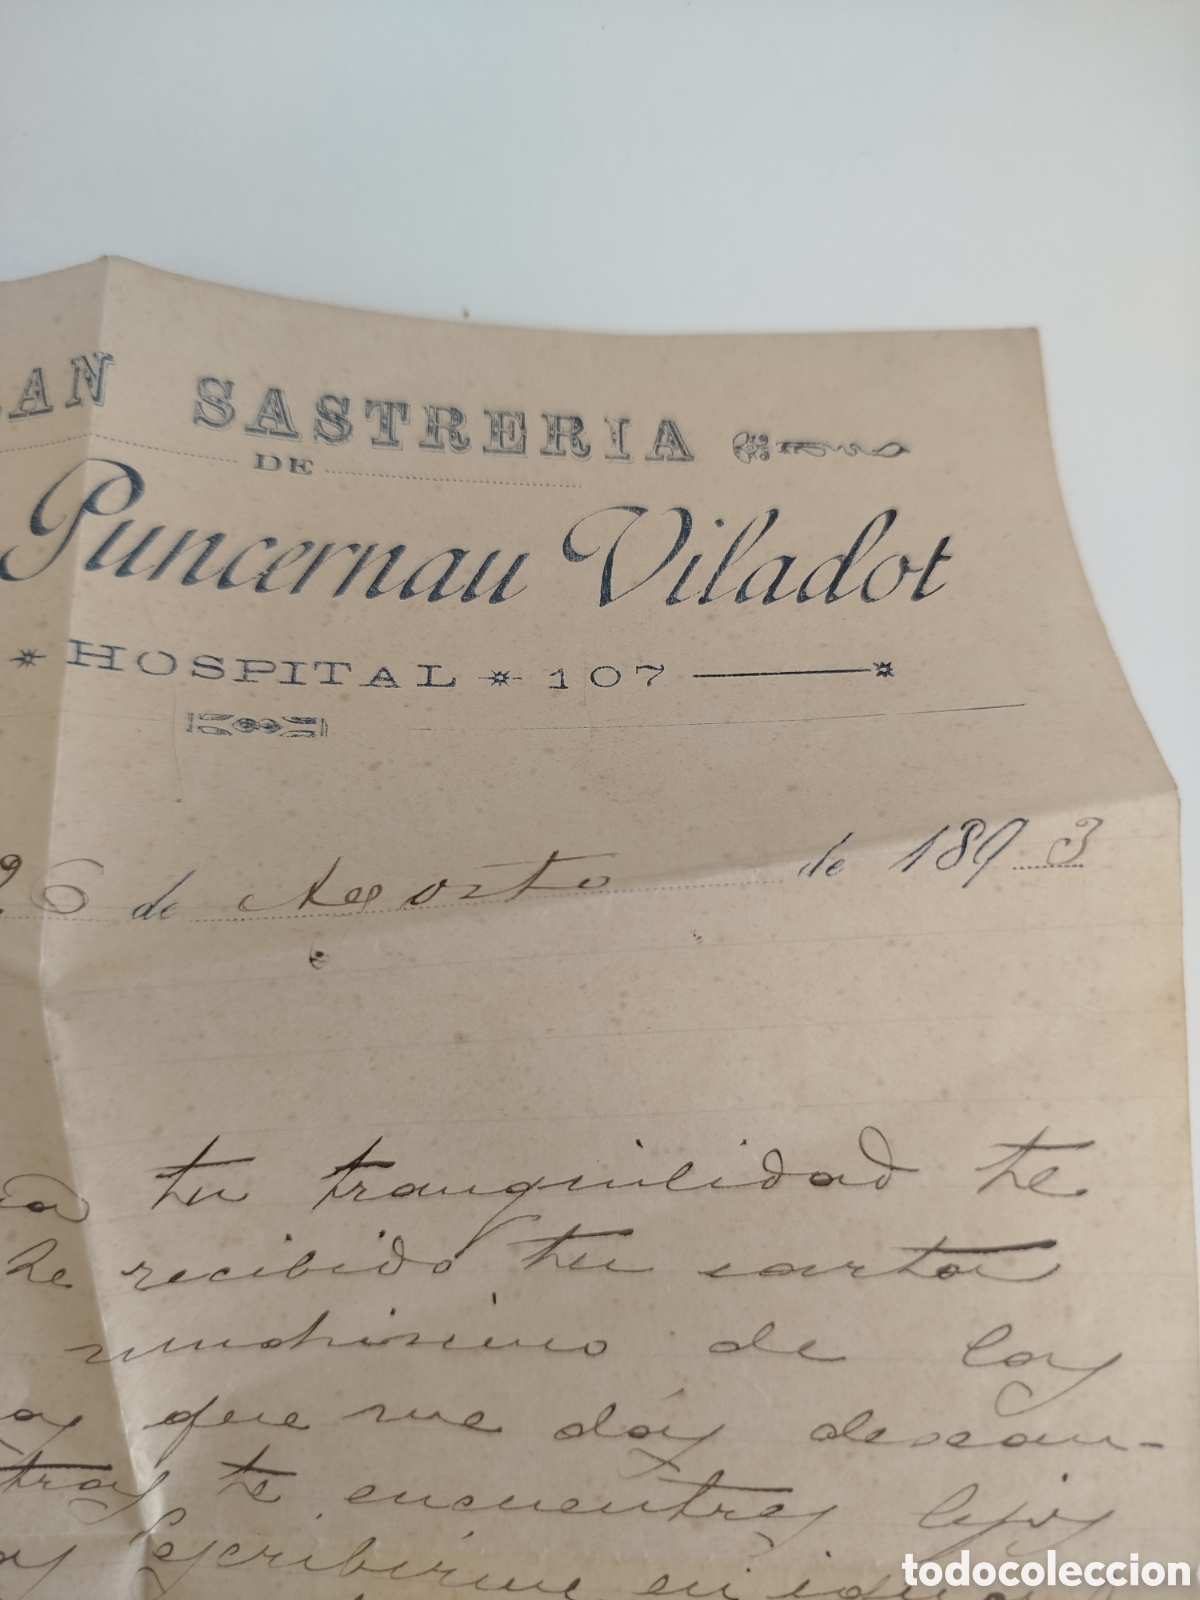 RAN SASTRERIA
DE
Puncernau Viladot
HOSPITAL 107
26 de Agosto de 1893
tu tranquilidad te
he recibido tu carta
muchisimo de las
que me dás desean-
tras te encuentres lejos
escribirme en
todocoleccion